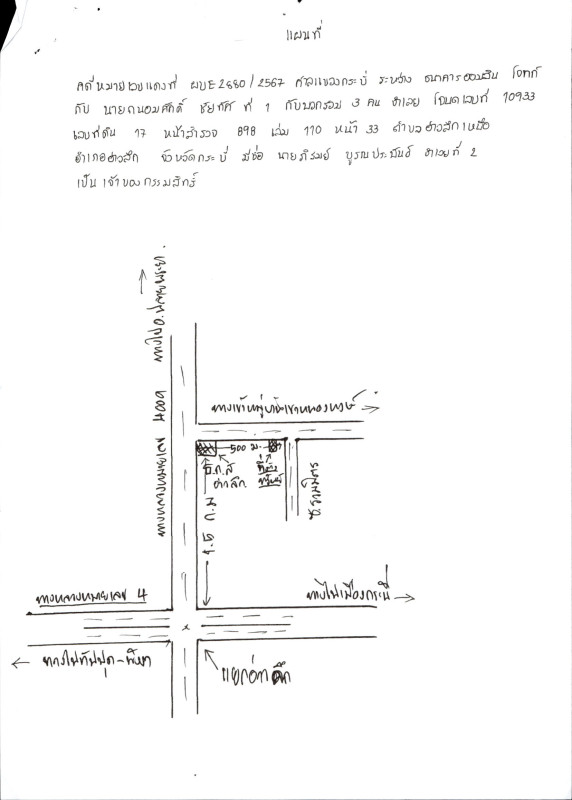 แผนที่
คดีหมายเลขแดงที่ ผบE2880/2567 ศาลแขวงกระบี่ ระหว่าง ธนาคารออมสิน โจทก์
กับ นายถนอมศักดิ์ ชัยทิศ ที่ 1 กับพวกรวม 3 คน จำเลย โฉนดเลขที่ 10933
เลขที่ดิน 17 หน้าสำรวจ 898 เล่ม 110 หน้า 33 ตำบลอ่าวลึกเหนือ
อำเภออ่าวลึก จังหวัดกระบี่ มีชื่อ นายภิรมย์ บูรณประพันธ์ จำเลยที่ 2
เป็นเจ้าของกรรมสิทธิ์
ทางไป อ.ปลายพระยา
ทางหลวงหมายเลข 4009
ทางเข้าหมู่บ้านเขา
500 ม.
ธ.ก.ส
อ่าวลึก
ที่ตั้ง
ทรัพย์
ซ.ร่วมมิตร
1.5 ก.ม
ทางหลวงหมายเลข 4
ทางไปเมืองกระบี่
ทางไปทับปุด-พังงา
แยกอ่าวลึก